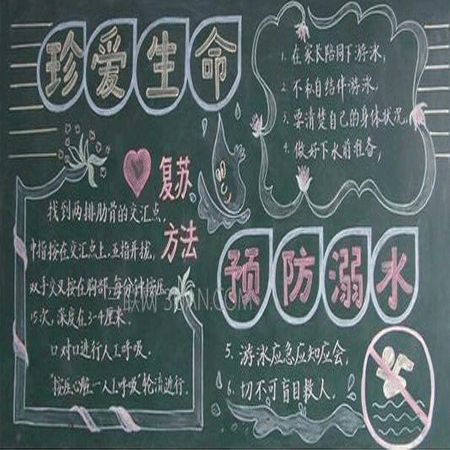 珍爱生命
1. 在家长陪同下游泳,
2. 不私自结伴游泳,
3. 要清楚自己的身体状况,
4. 做好下水前准备,
复苏
方法
找到两排肋骨的交汇点,
中指按在交汇点上,五指并拢,
双手交叉按在胸部,每分钟按压
15次,深度在3-4厘米.
口对口进行人工呼吸.
"按压心脏-人工呼吸"轮流进行.
预防溺水
5. 游泳应急应知应会,
6. 切不可盲目救人.